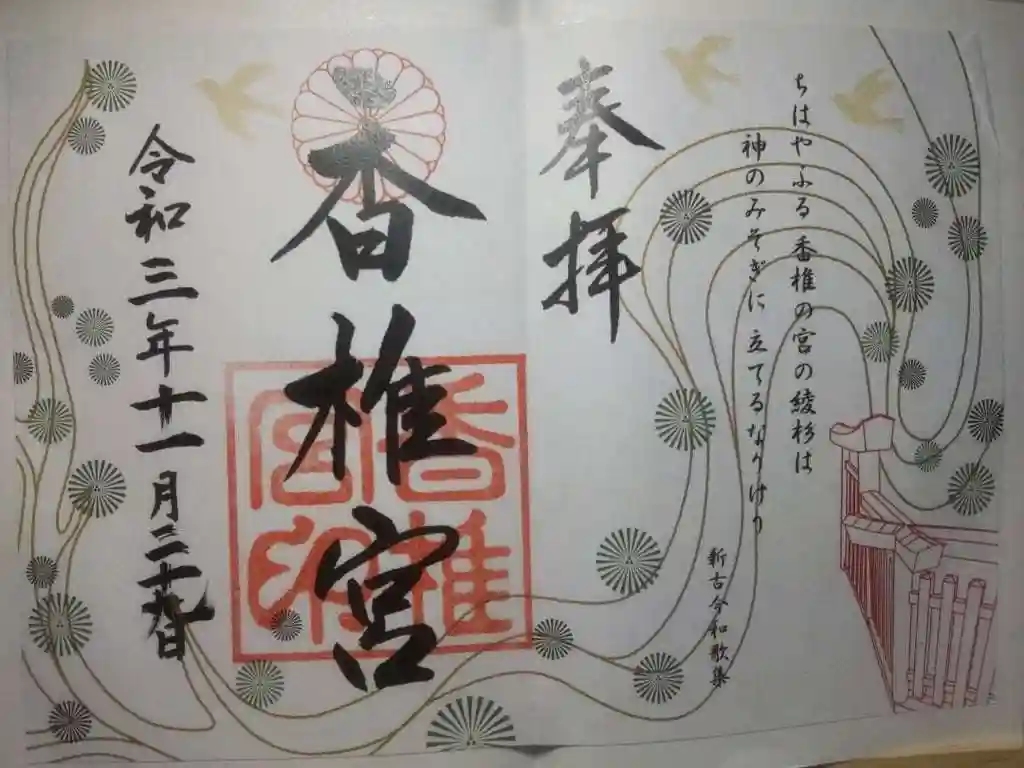 奉拝
ちはやふる香椎の宮の綾杉は
神のみそぎに立てるなりけり
新古今和歌集
香椎宮
香椎宮印
令和三年十一月二十九日